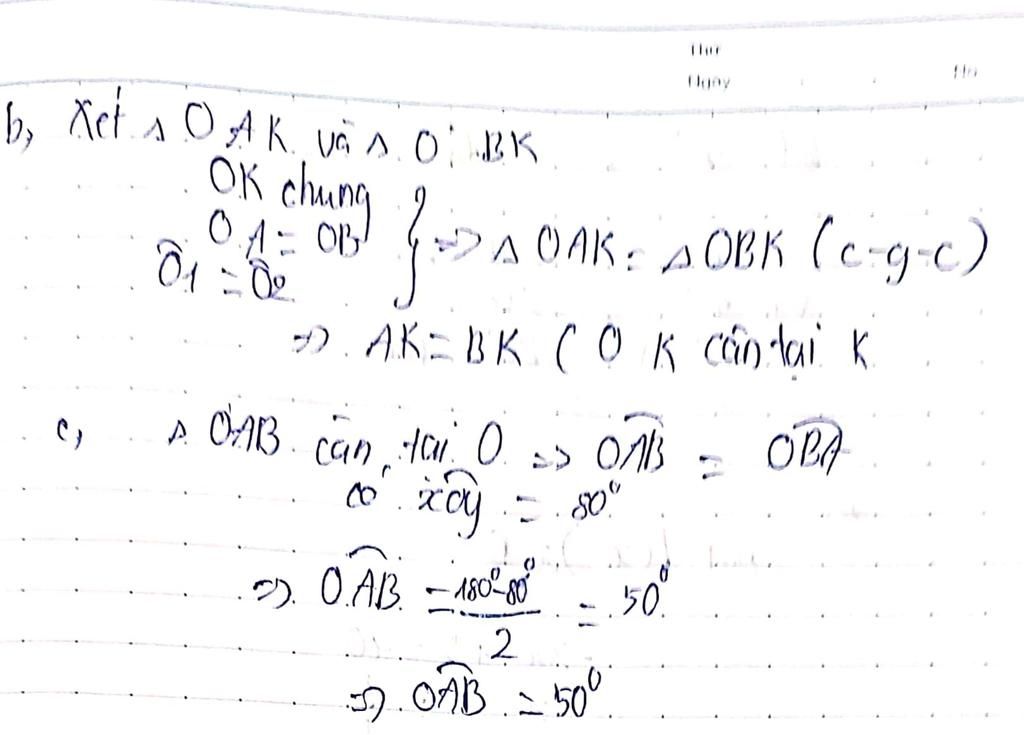 Thứ
Ngày
b, Xét Δ OAK và Δ OBK
OK chung
OA = OB } => Δ OAK = Δ OBK (c-g-c)
Ô1 = Ô2
=> AK = BK ( O K cân tại K
c, Δ OAB cân tại O => OÂB = OB̂A
có xÔy = 80°
=> OÂB = 180°-80° / 2 = 50°
=> OÂB = 50°